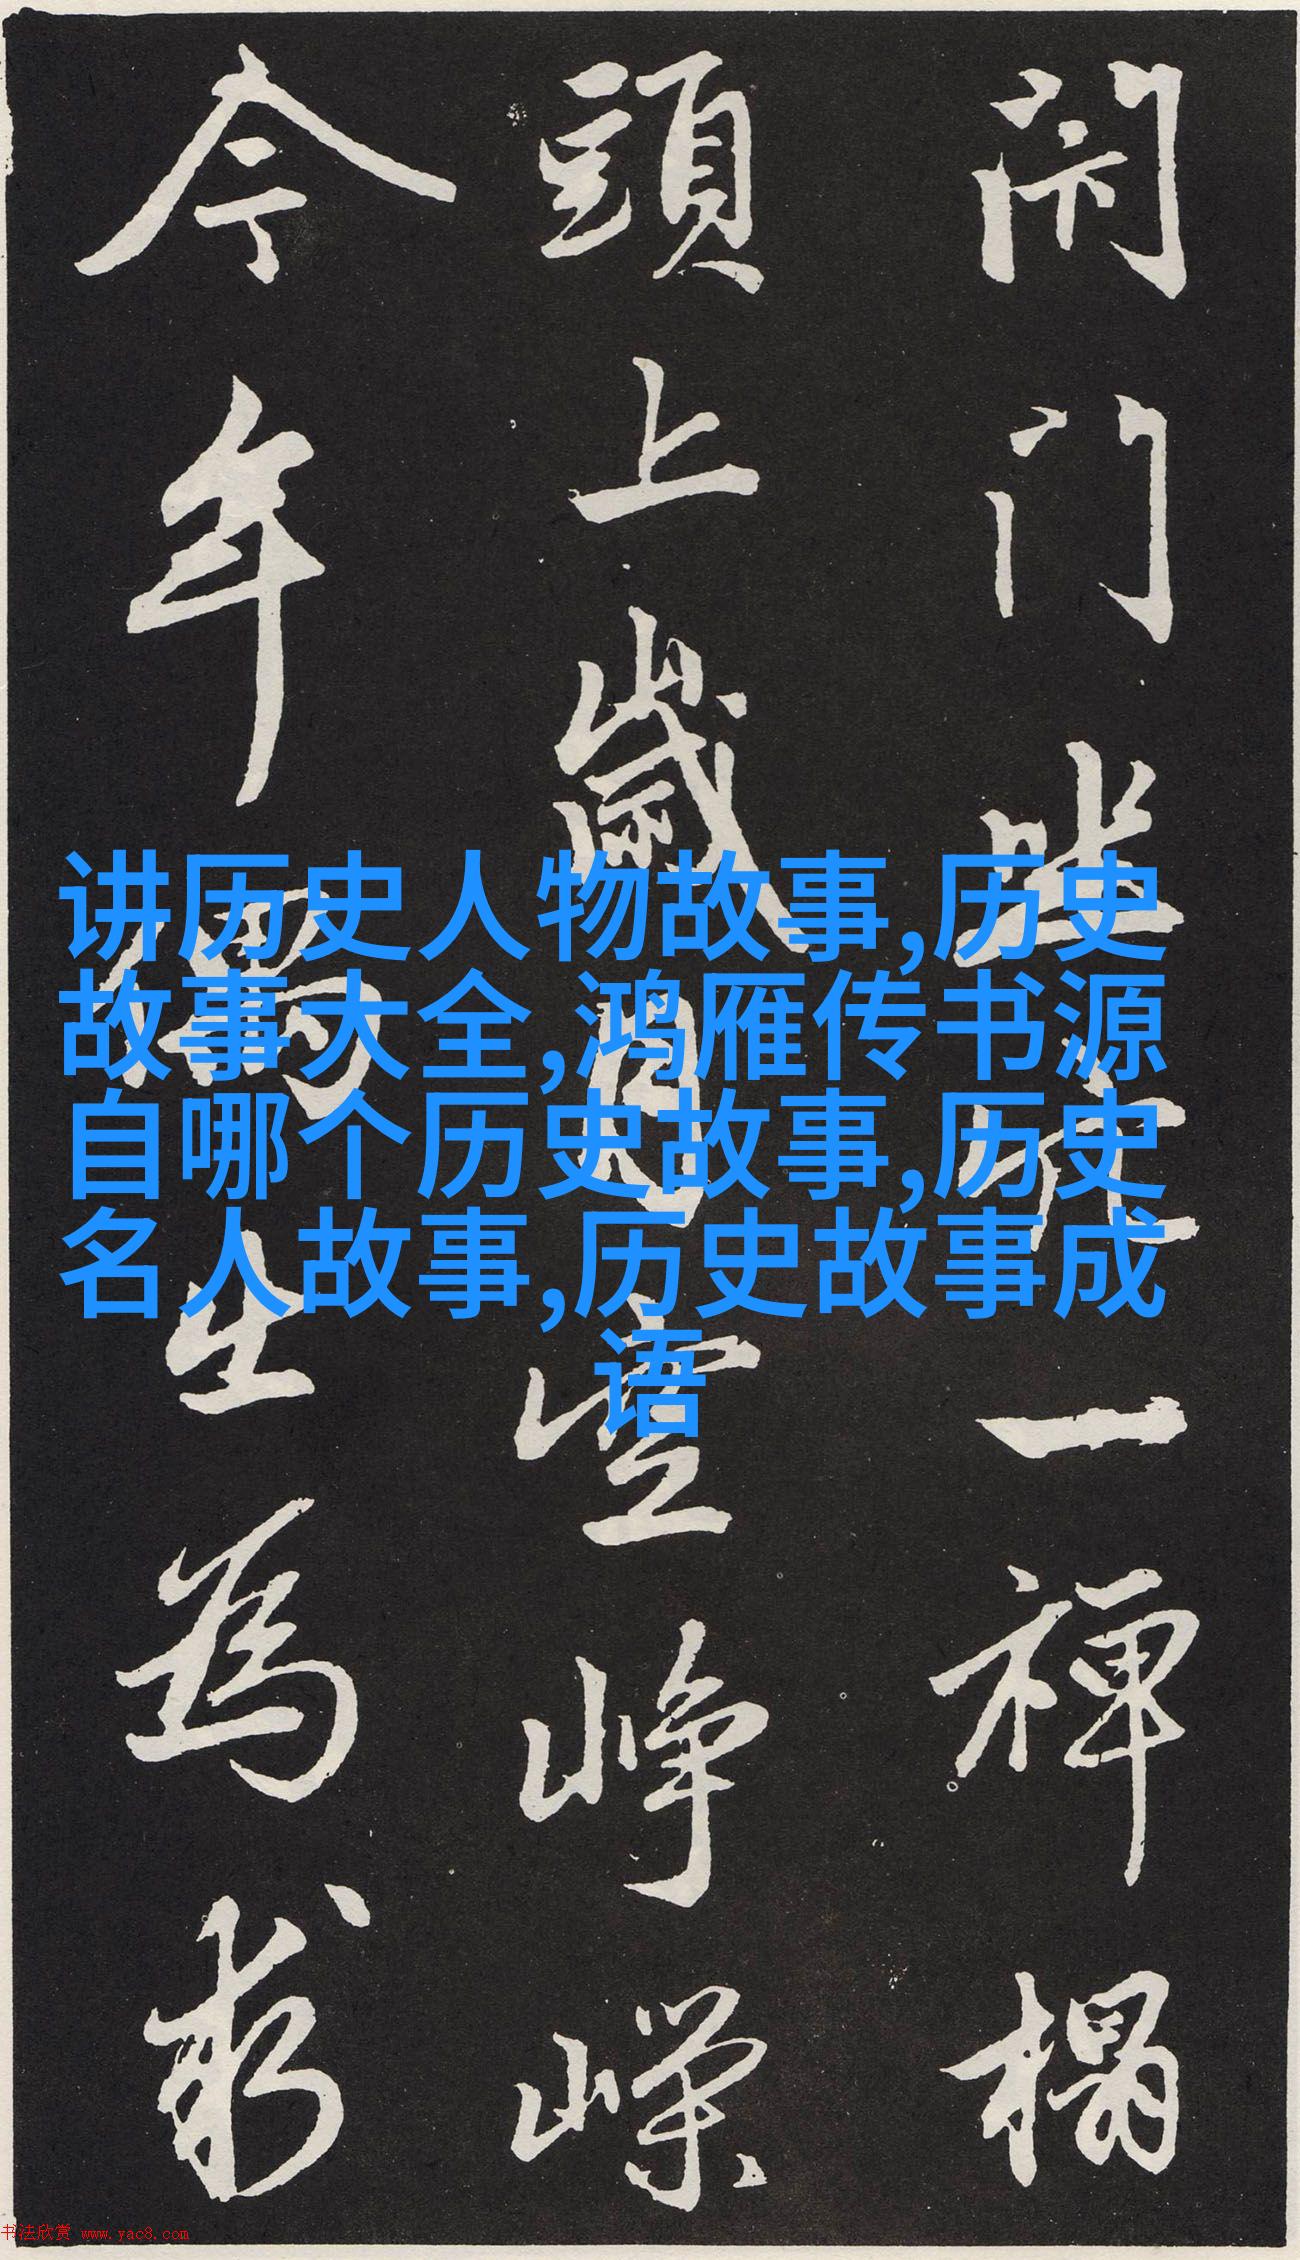 閇门坐穴一禪榻
頭上歲月空峥嶸
今年偶出為求
讲历史人物故事,历史
故事大全,鸿雁传书源
自哪个历史故事,历史
名人故事,历史故事成
语
书法欣赏 www.yac8.com